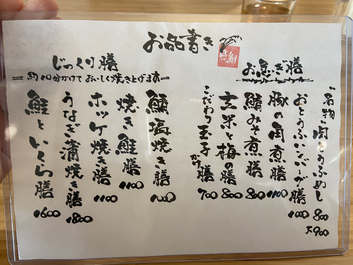 お品書き
お急ぎ膳
名物 肉とうふめし 800
大900
おとうふハンバーグ膳 1000
豚の角煮膳 1100
鯖みそ煮膳 800
玄米と梅の膳 800
こだわり玉子膳 700
じっくり膳
約10分かけておいしく焼き上げます
鯖塩焼き膳 1000
焼き鮭膳 1100
ホッケ焼き膳 1100
うなぎ蒲焼き膳 1800
鮭といくら膳 1600